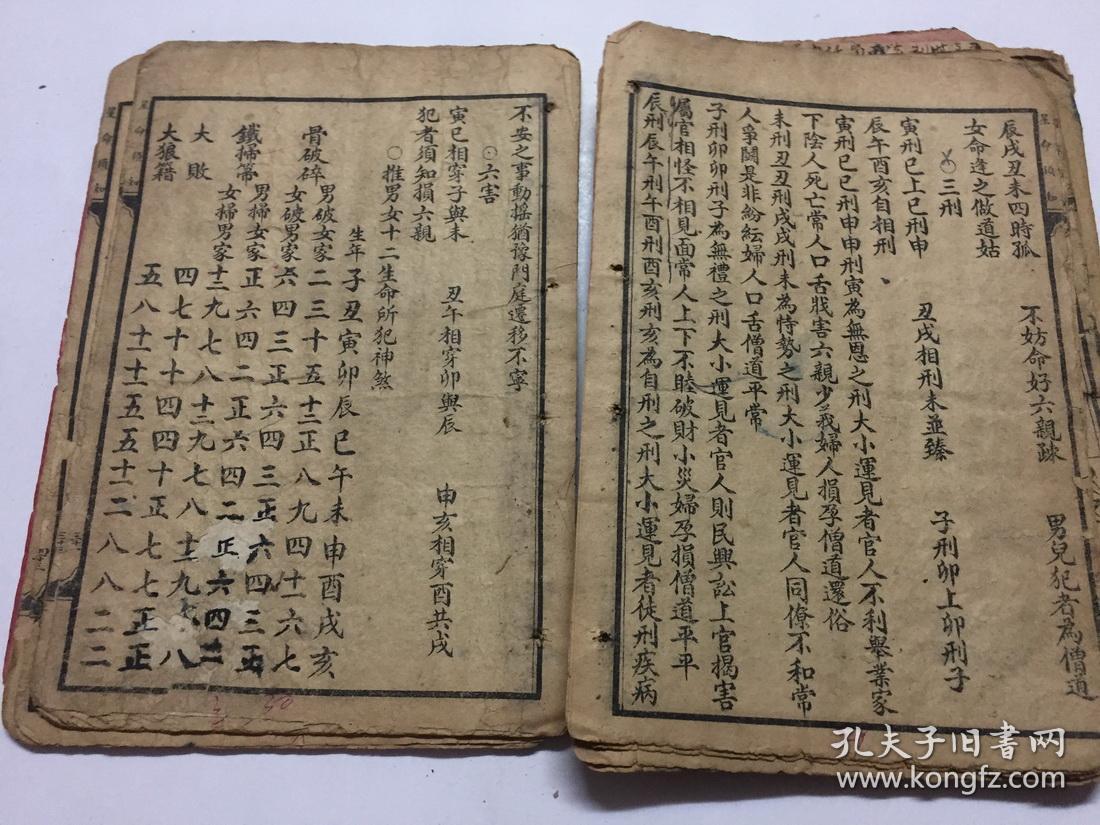 辰戌丑未四時孤 不妨命好六親疎 男兒犯者為僧道
女命逢之做道姑
三刑
寅刑巳上巳刑申 丑戌相刑未並臻 子刑卯上卯刑子
辰午酉亥自相刑
寅刑巳巳刑申申刑寅為無恩之刑大小運見者官人不利舉業家
下陰人死亡常人口舌戕害六親少義婦人損孕僧道還俗
未刑丑丑刑戌戌刑未為恃勢之刑大小運見者官人同僚不和常
人爭鬪是非紛紜婦人口舌僧道平常
子刑卯卯刑子為無禮之刑大小運見者官人則民興訟上官揭害
屬官相怪不相見面常人上下不睦破財小災婦孕損僧道平平
辰刑辰午刑午酉刑酉亥刑亥為自刑之刑大小運見者徒刑疾病
不安之事動搖猶豫門庭遷移不寧
⊙六害
寅巳相穿子與未 丑午相穿卯與辰 申亥相穿酉共戌
犯者須知損六親
○推男女十二生命所犯神煞
生年 子丑寅卯辰巳午未申酉戌亥
骨破碎 男破女家 二三十五十二正八九四十一六七
女破男家 六四三正六四三正六四三五
鐵掃帚 男掃女家 正六四二正六四二正六四二
女掃男家 十二九七八十二九七八十二九八
大敗 四七十十四四十正七七正正
大狼籍 五八十一十一五五十二二八八二二
孔夫子旧書网
www.kongfz.com